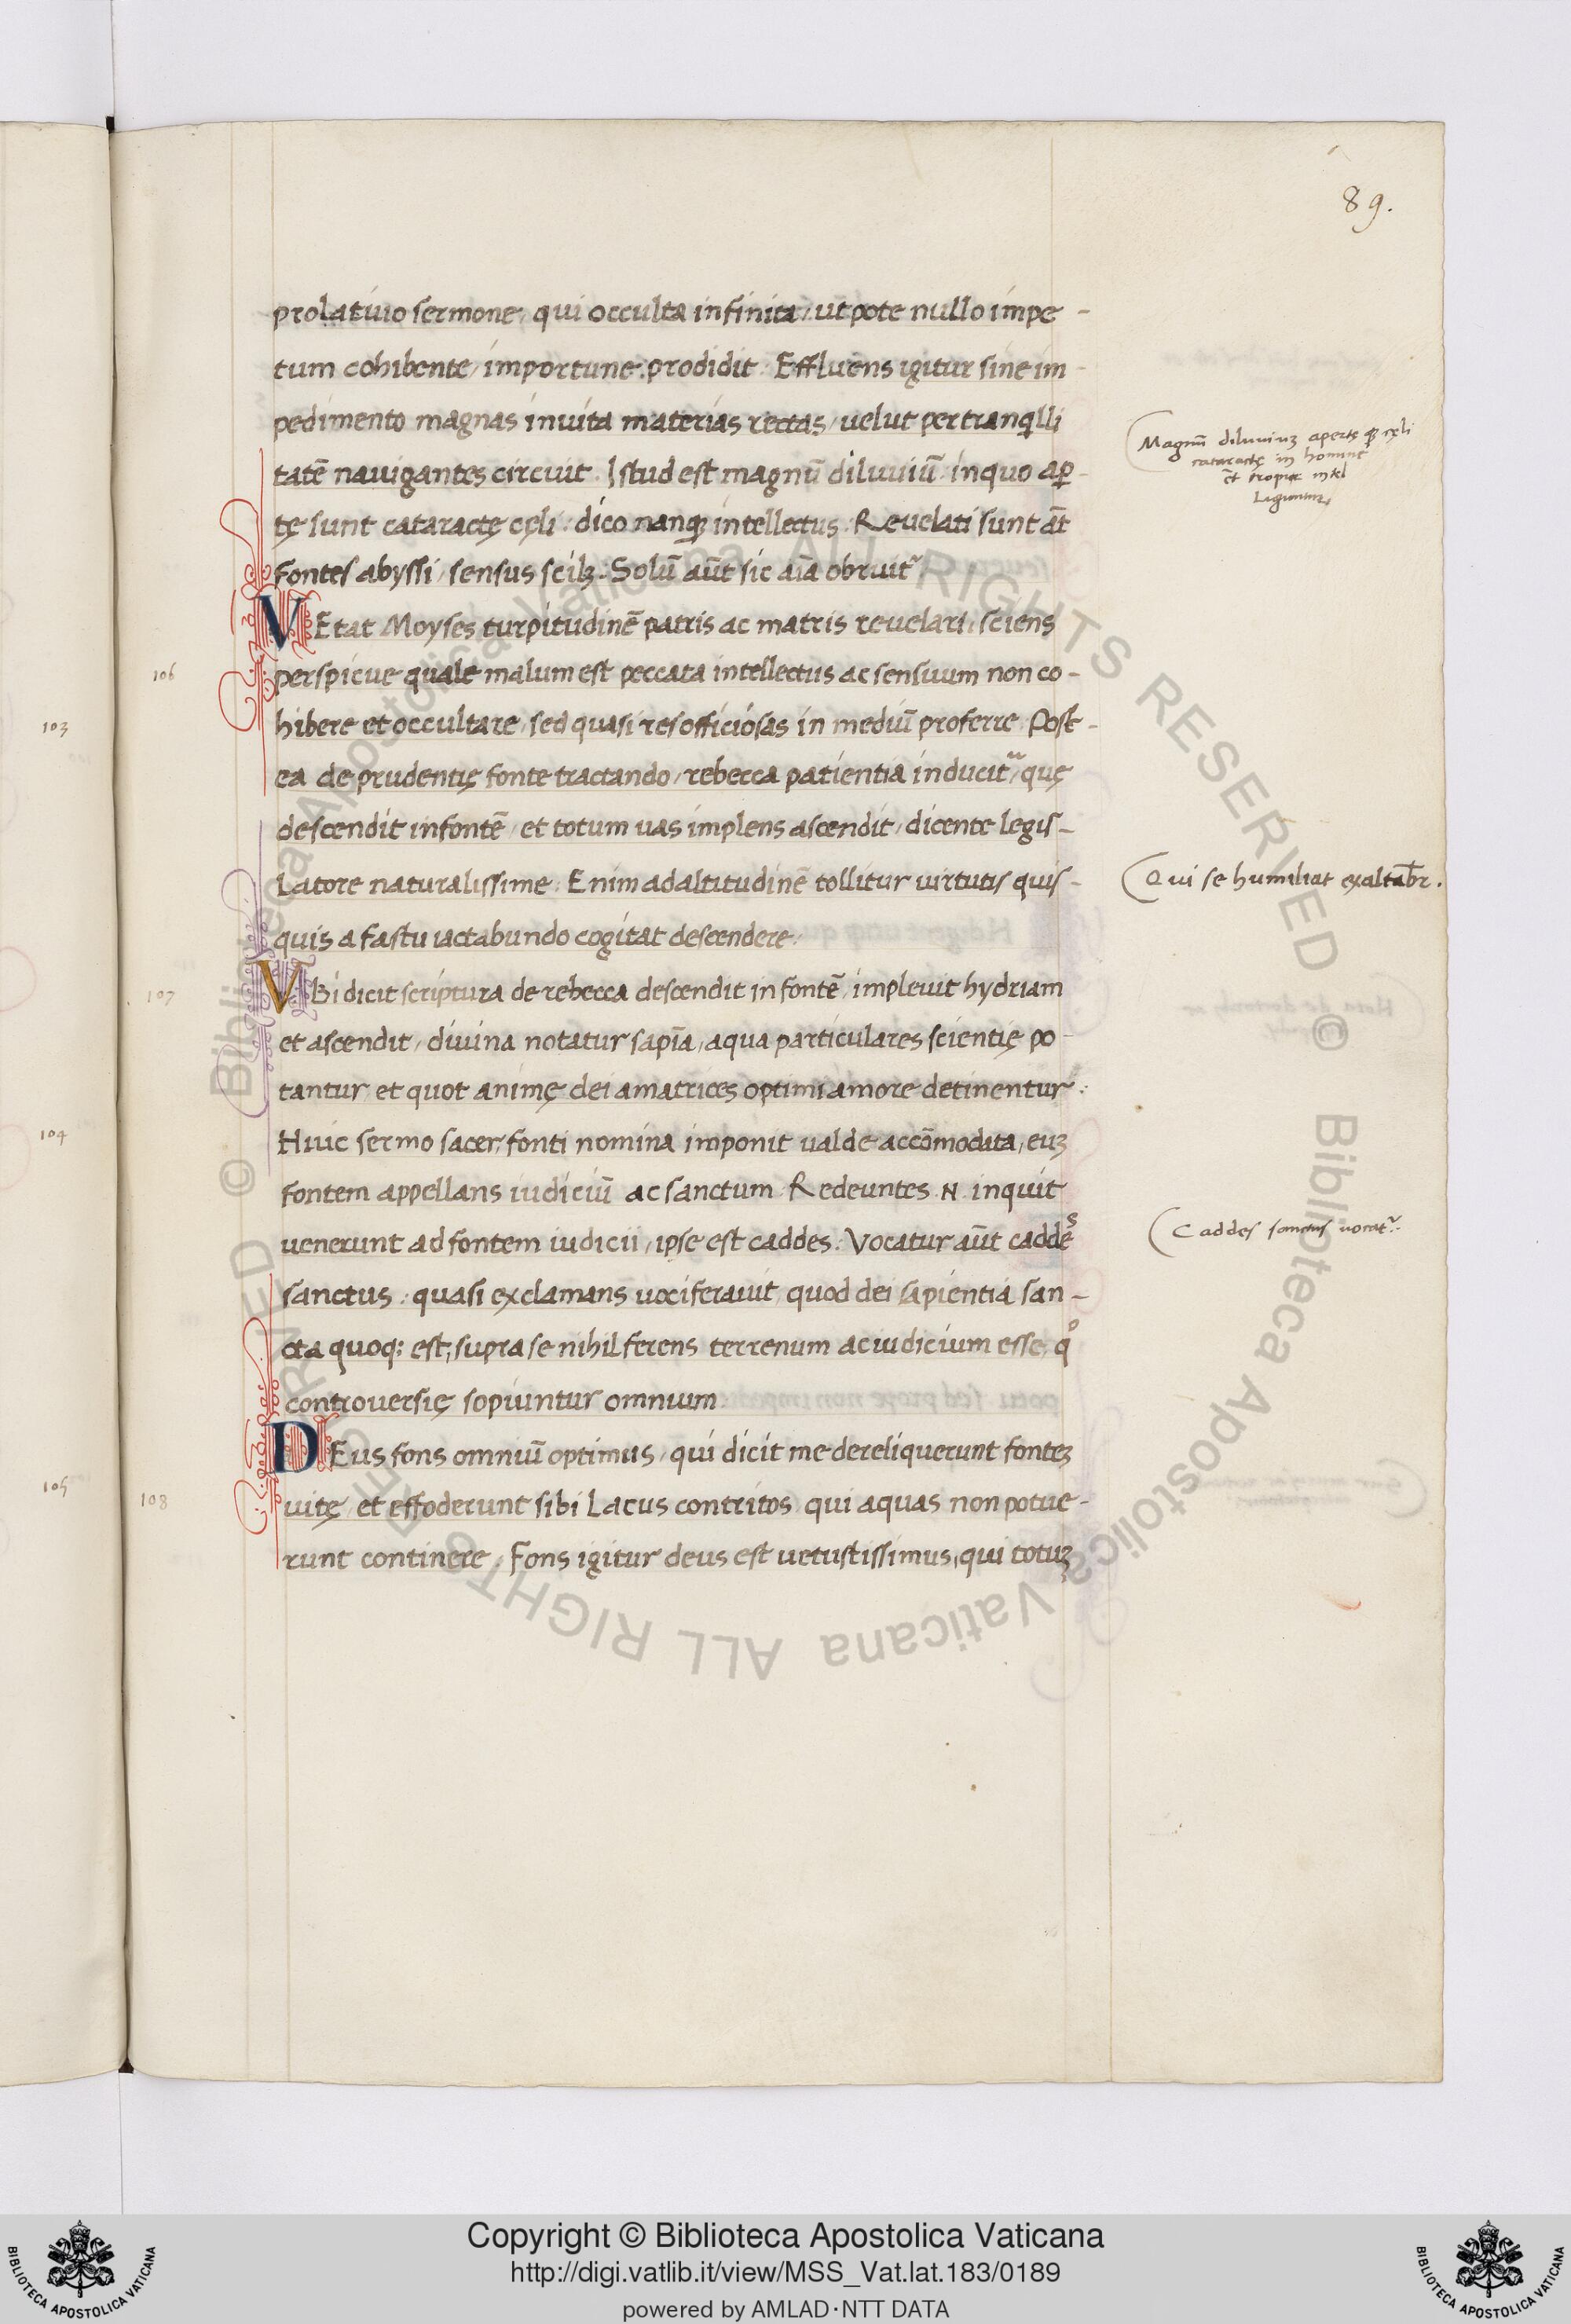 89.
prolatiuo sermone, qui occulta infinita, ut pote nullo impe-
tum cohibente, importune prodidit. Effluens igitur sine im-
pedimento magnas in uita materias rectas, uelut per tranqlli
tatē nauigantes circuit. Istud est magnū diluuiū in quo ap-
tę sunt cataractę cęli: dico nanqꝫ intellectus. Revelati sunt āt
fontes abyssi, sensus scilꝫ. Solū aūt sic aīa obruit~
VEtat Moyses turpitudinē patris ac matris reuelari, sciens
perspicue quale malum est peccata intellectus ac sensuum non co-
hibere et occultare, sed quasi res officiosas in mediū proferre. Post-
ea de prudentię fonte tractando, rebecca patientia inducit~, quę
descendit in fontē, et totum uas implens ascendit, dicente legis-
latore naturalissime. Enim ad altitudinē tollitur uirtutis quis-
quis a fastu iactabundo cogitat descendere.
VBi dicit scriptura de rebecca descendit in fontē, impleuit hydriam
et ascendit, diuina notatur sapīa, aqua particulares scientię po-
tantur, et quot animę dei amatrices optimi amore detinentur.
Huic sermo sacer fonti nomina imponit ualde accōmodata, euꝫ
fontem appellans iudiciū ac sanctum. Redeuntes .N. inquit
uenerunt ad fontem iudicii, ipse est caddes. Vocatur aūt caddes
sanctus: quasi exclamans uociferauit, quod dei sapientia san-
cta quoq; est, supra se nihil ferens terrenum ac iudicium esse, qͦ
controuersię sopiuntur omnium.
DEus fons omniū optimus, qui dicit me dereliquerunt fonteꝫ
uitę, et effoderunt sibi lacus contritos qui aquas non potue-
runt continere. Fons igitur deus est uetustissimus, qui totuꝫ
Magnū diluuiuꝫ apertę qꝫ cęli
cataractę in
Qui se humiliat exaltabr̄.
Caddes sanctus uocat~.
106
103
107
104
105
108
© Biblioteca Apostolica Vaticana ALL RIGHTS RESERVED © Biblioteca Apostolica Vaticana ALL RIGHTS RESERVED
Copyright © Biblioteca Apostolica Vaticana
http://digi.vatlib.it/view/MSS_Vat.lat.183/0189
powered by AMLAD·NTT DATA
BIBLIOTECA APOSTOLICA VATICANA
BIBLIOTECA APOSTOLICA VATICANA